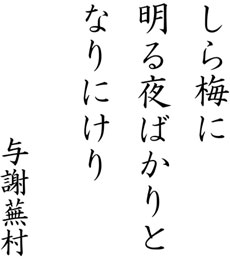 しら梅に
明る夜ばかりと
なりにけり
与謝蕪村